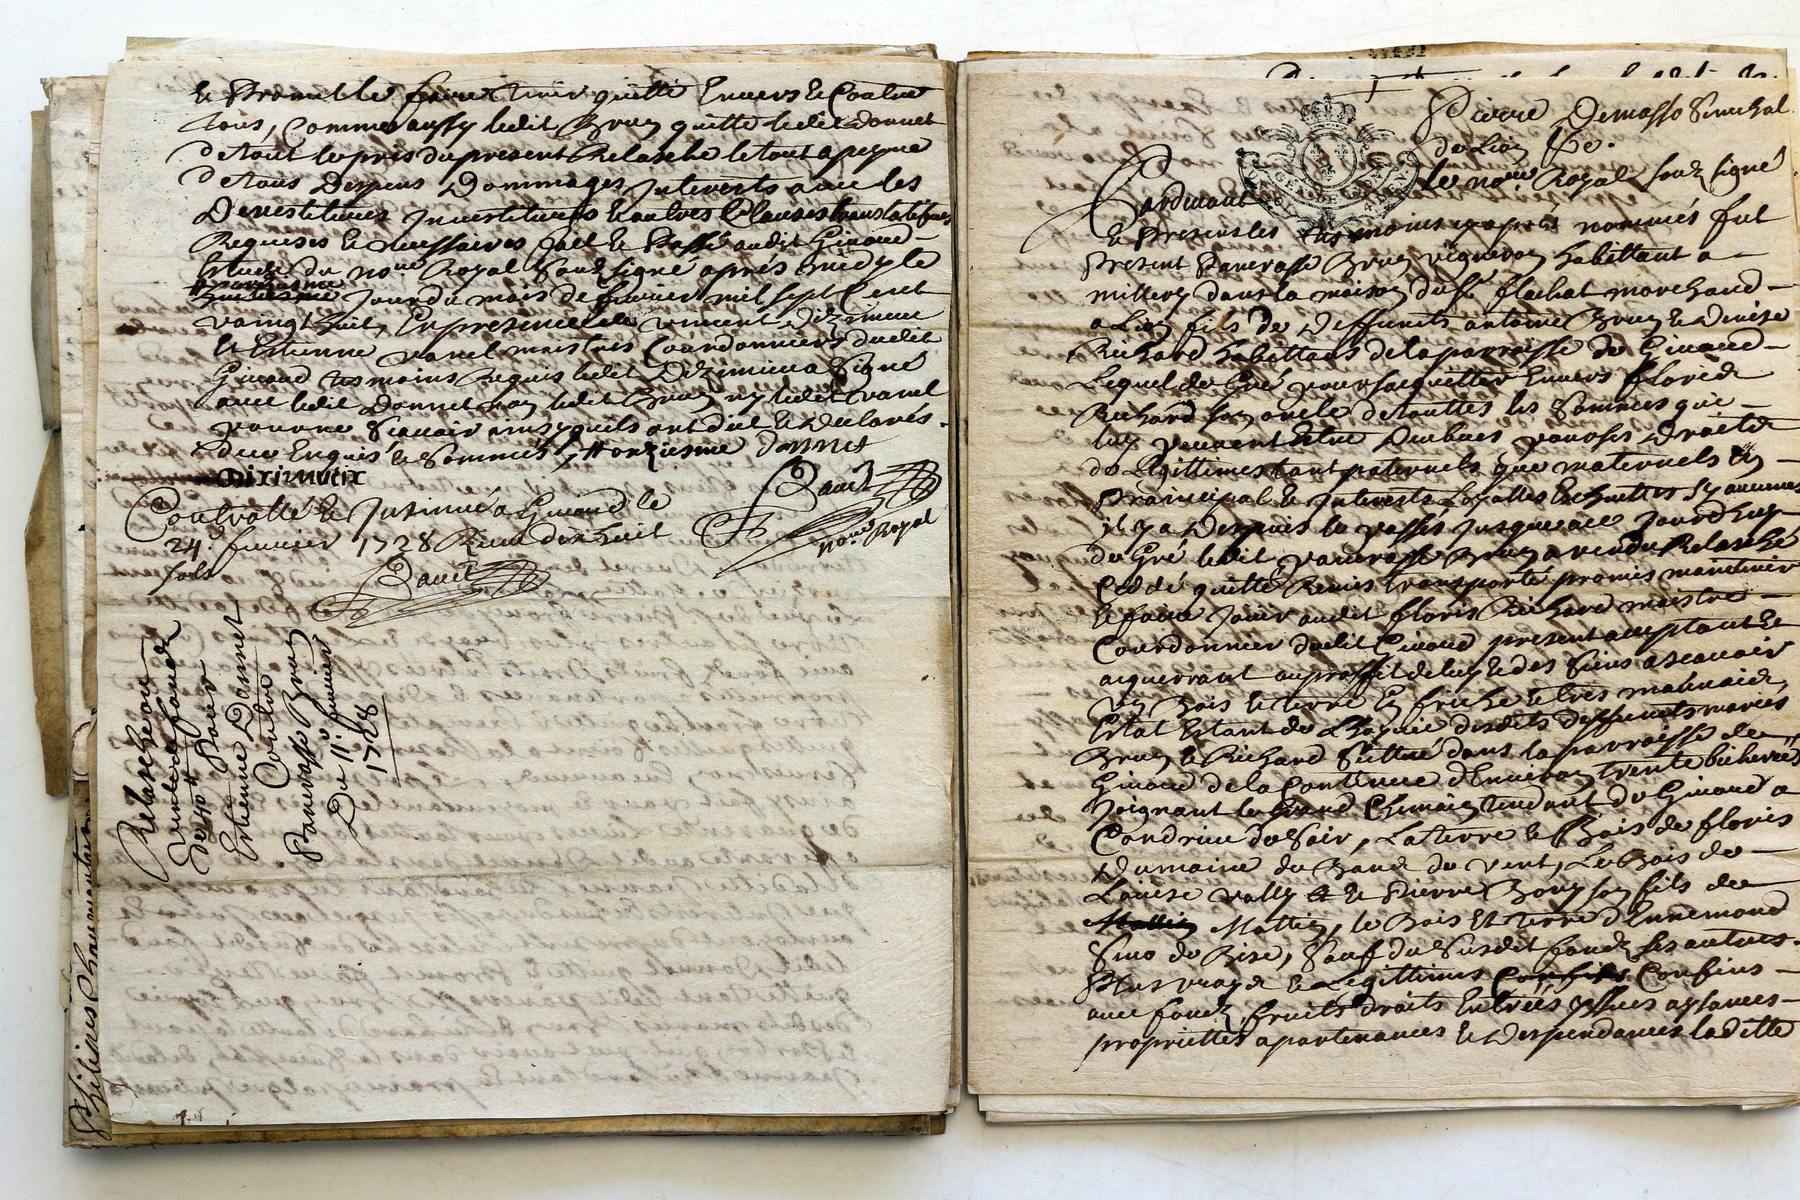 et Promet le faire tenir quitte Envers et Contre
tous, Comme aussy ledit Bruy quitte ledit donnet
de tout le pris du present Relasche le tout a peyne
de tous Despens Dommages Interests avec les
Devestitures Investitures et autres Clauses translatifves
Requises et necessaires fait et Passé audit Givord
Estude du no.re Royal Souz signé aprés midy le
jour du mois de fevrier mil sept Cent
vaingt huit, En presence de vincent Diximieux
et Estienne vanel maistres Courdonniers dudit
Givord tesmoins Requis ledit Diximieux a Signé
avec ledit Donnet non ledit Bruy ny ledit vanel
pour ne Scavoir ainsy quils ont dit et declarés.
deue Enquis et Sommés, # onziesme donnet
Diximieux
Controllé et Insinué a Givord le
24.e fevrier 1728 Receu dix huit
sols
no.re Royal
Relasche ou
vente de fondz
pour
Estienne Donnet
Contre
Pancrasse Bruy
Du 11.e fevrier
1728
Philipes Chaumartin
Pierre Demasso Senechal
de Lion &c.
Pardevant le no.re Royal souz signé
et Presents les tesmoins cy apres nommés fut
Present Pancrasse Bruy vigneron habittant a
millery dans la maison du S.r flachat marchand
a Lion fils de deffunts antoine Bruy et Denise
Richard habittans de la parroisse de Givord
Lequel de Gré pour sacquitter Envers floris
Richard son oncle de touttes les Sommes que
luy peuvent Estre Deubues pour ses Droits
de Legittimes tant paternels que maternels En
Principal et Interests Loyattes Escheuttes Sy aucunes
il y a Despuis le passé Jusques a ce Jourdhuy
du Gré ledit pancrasse Bruy a vendu Relasché
Ceddé quitté Remis transporté promis maintenir
et faire Jouir audit floris Richard maistre
Courdonnier dudit Givord present acceptant et
acquerrant au proffit de luy et des Siens a scavoir
un Bois et terre En friche et tres mauvaise,
Estat Estant de Lhoyrie desdits deffunts mariés
Bruy et Richard Scittué dans la parroisse de
Givord de la Contenue d'Environ trente bicherées
Joignant le Grand Chemain tendant de Givord a
Condrieu de Soir, La terre et Bois de floris
Dumaine du vent, Le Bois de
Louise vally et de Pierre Bony son fils de
Mattin, le Bois Et terre d'Ennemond
de Bise, Sauf du Susdit fondz ses autres
Plus vrays et Legittimes Confins Confins
avec fondz, fruits droits Entrées yssues aysances
proprietés apartenances et Despendances ladite